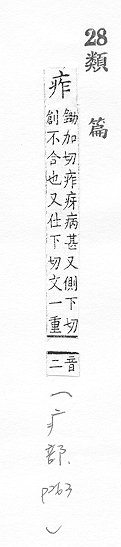 28
類篇
痄
鋤加切痄疨病甚又側下切
創不合也又仕下切文一重
音二
(疒部. p263)